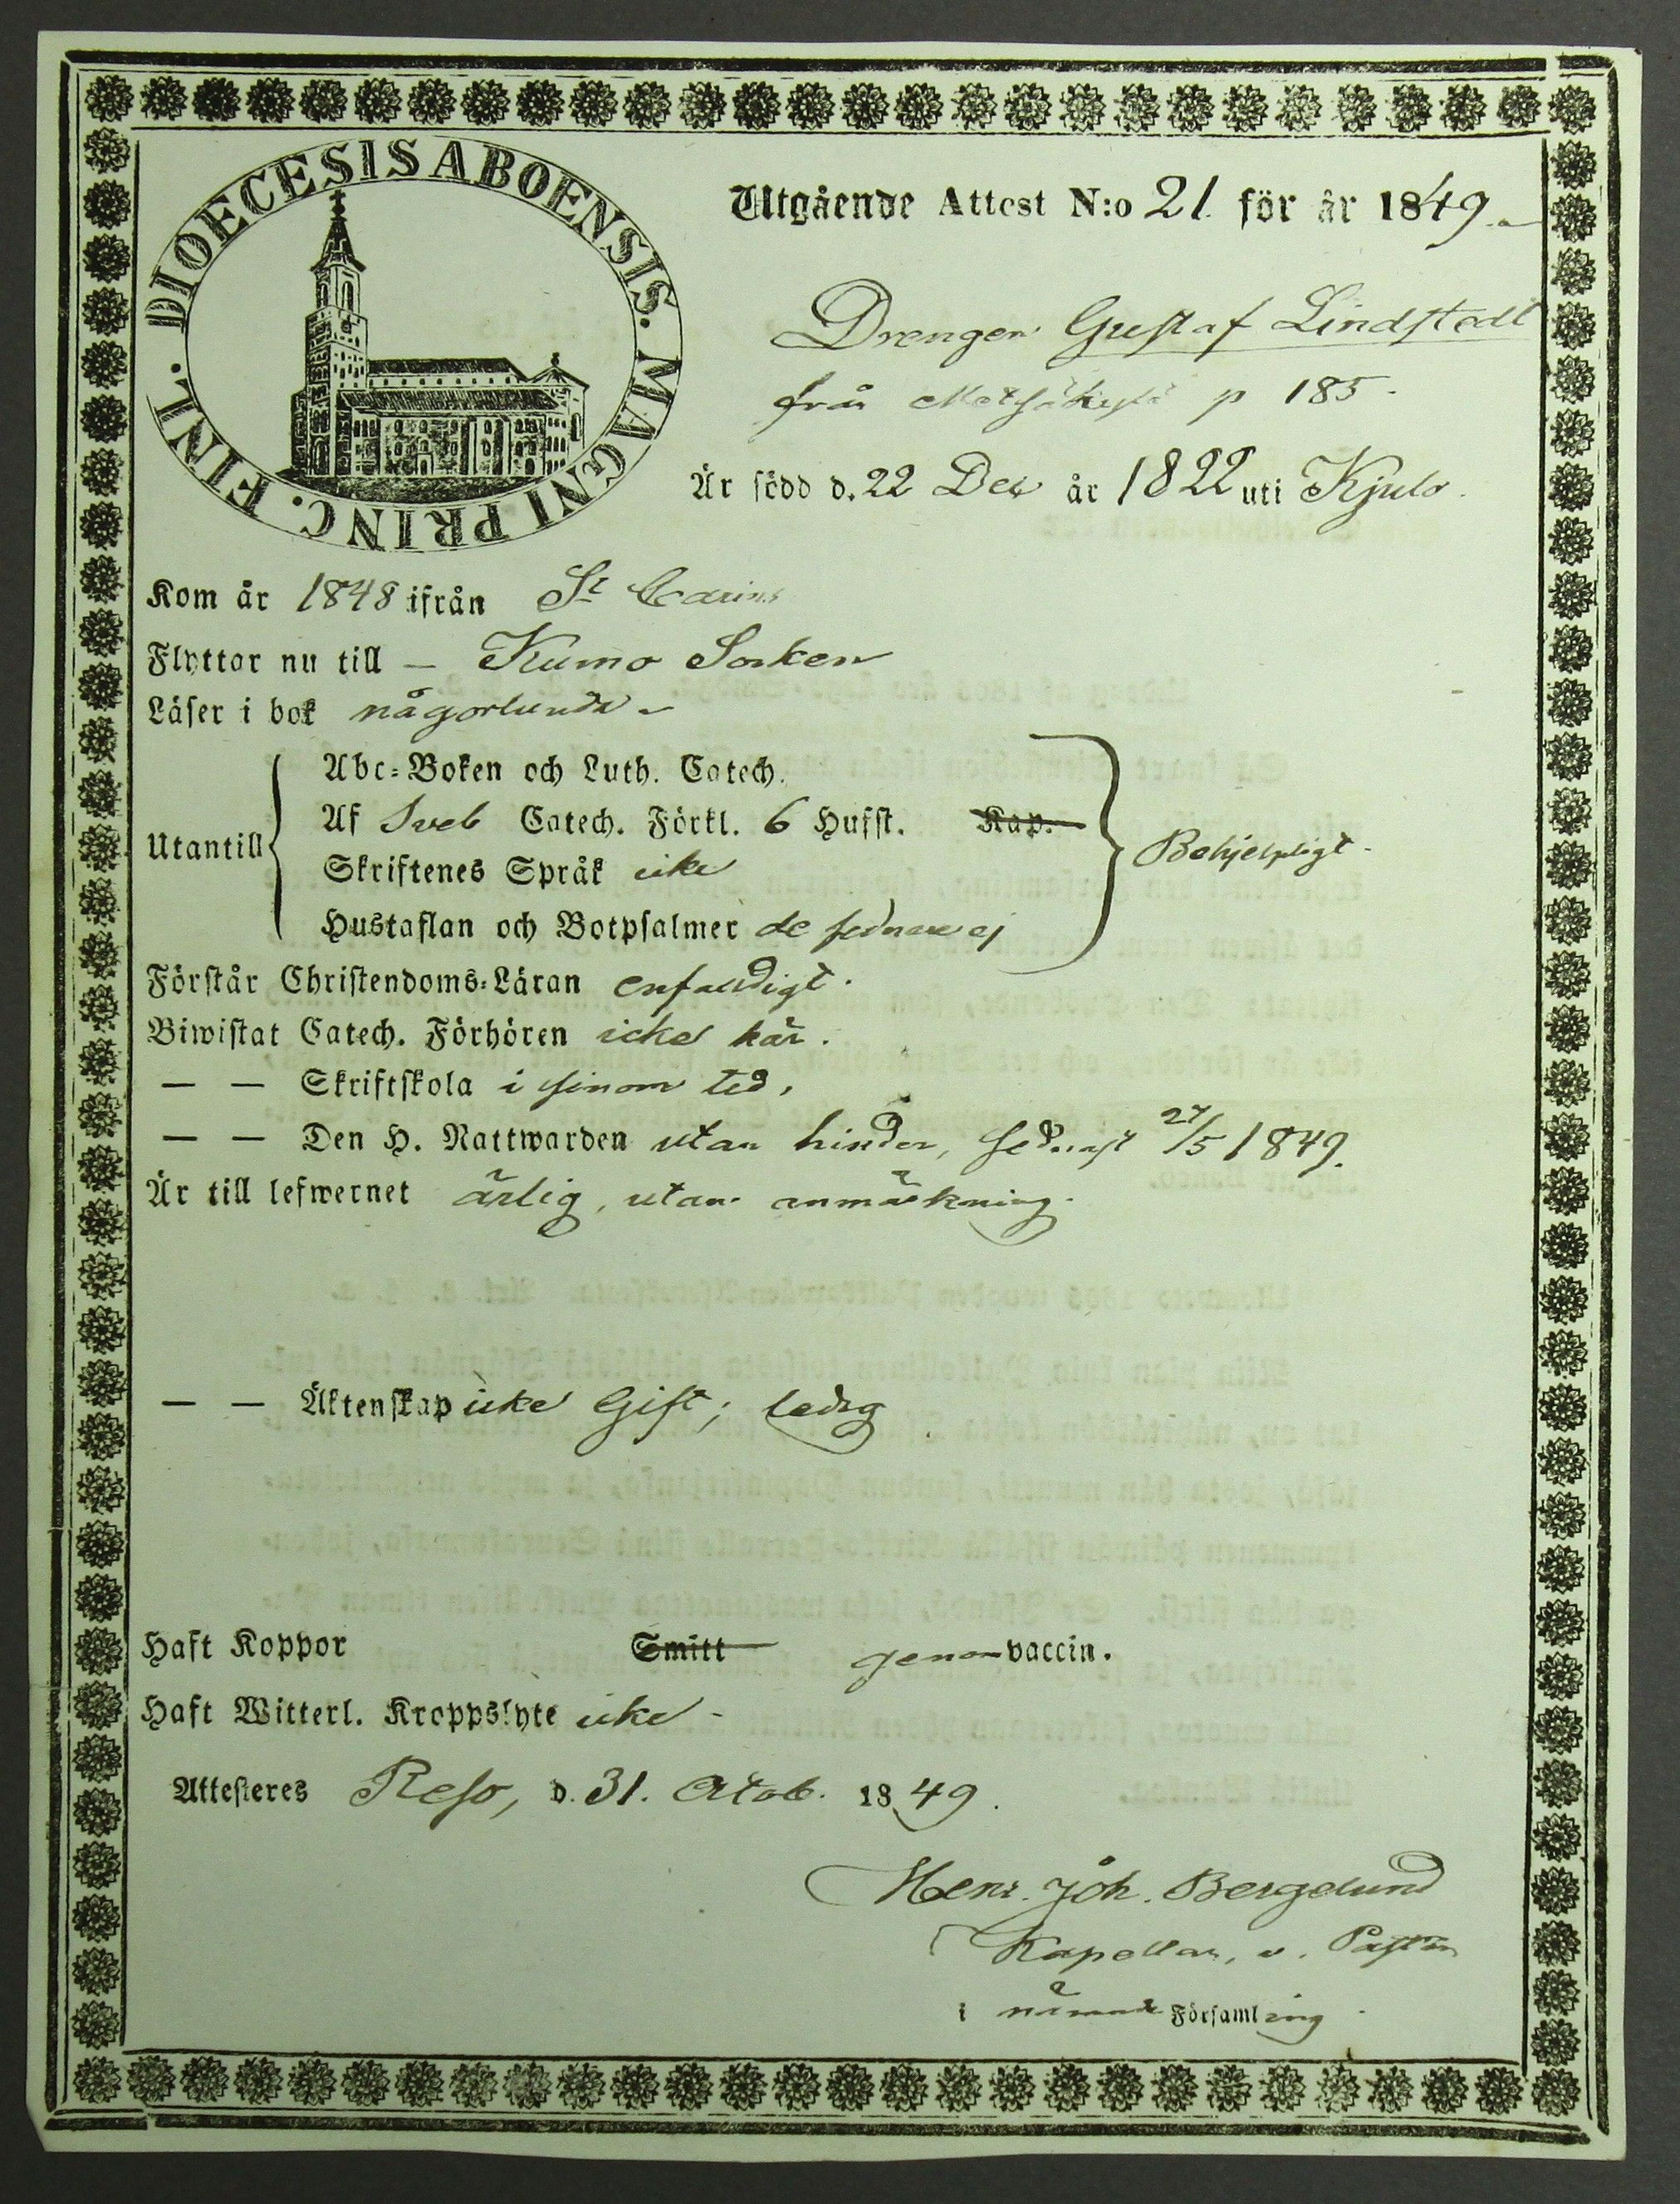 DIOECESIS ABOENSIS. MAGNI PRINC. FINL.
Utgående Attest N:o 21 för år 1849.
Drengen Gustaf Lindstedt
från p 185.
Är född d. 22 Dec år 1822 uti Kjulo.
Kom år 1848 ifrån St Carins
Flyttar nu till – Kumo Socken
Läser i bok någorlunda
Utantill
Abc-Boken och Luth. Catech.
Af Sveb Catech. Förkl. 6 Hufst. Kap.
Skriftenes Språk icke
Hustaflan och Botpsalmer de sednare ej
Behjelpligt.
Förstår Christendoms-Läran enfaldigt.
Biwistat Catech. Förhören icke här.
— — Skriftskola i sinom tid,
— — Den H. Nattwarden utan hinder, sednast 27/5 1849.
Är till lefwernet ärlig, utan anmärkning.
— — Äktenskap icke Gift; ledig
Haft Koppor Smitt genom vaccin.
Haft Witterl. Kroppslyte icke –
Attesteres Reso, d. 31. Octob. 1849.
Henr. Joh. Bergelund
Kapellan, v. Pastor
i nämnde Församling